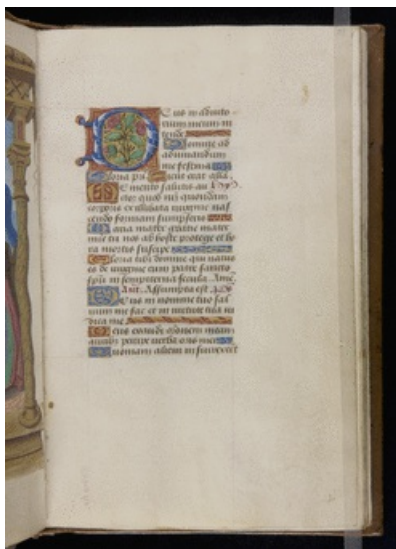 Deus in adiuto
rium meum in
tende
Domine ad
adiuuandum
me festina
Gloria p̄ri Sicut erat alia
Memento salutis au
ctor quod nr̄i quondam
corporis ex illibata uirgine nas
cendo formam sumpseris
Maria mater gratie mater
mie tu nos ab hoste protege et ho
ra mortis suscipe
Gloria tibi domine qui natus
es de uirgine cum patre sancto
sp̄u in sempiterna secula Ame
Ant. Assumpta est
Deus in nomine tuo sal
uum me fac et in uirtute tua iu
dica me
Deus exaudi or̄onem meam
auribus percipe uerba oris mei
Quoniam alieni insurrexer